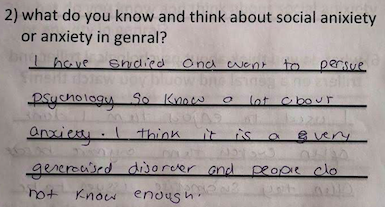 2) what do you know and think about social anixiety
or anxiety in genral?
I have srudied and went to persue
psychology so know a lot about
anxiety. I think it is a very
generalised disorder and people do
not know enough.